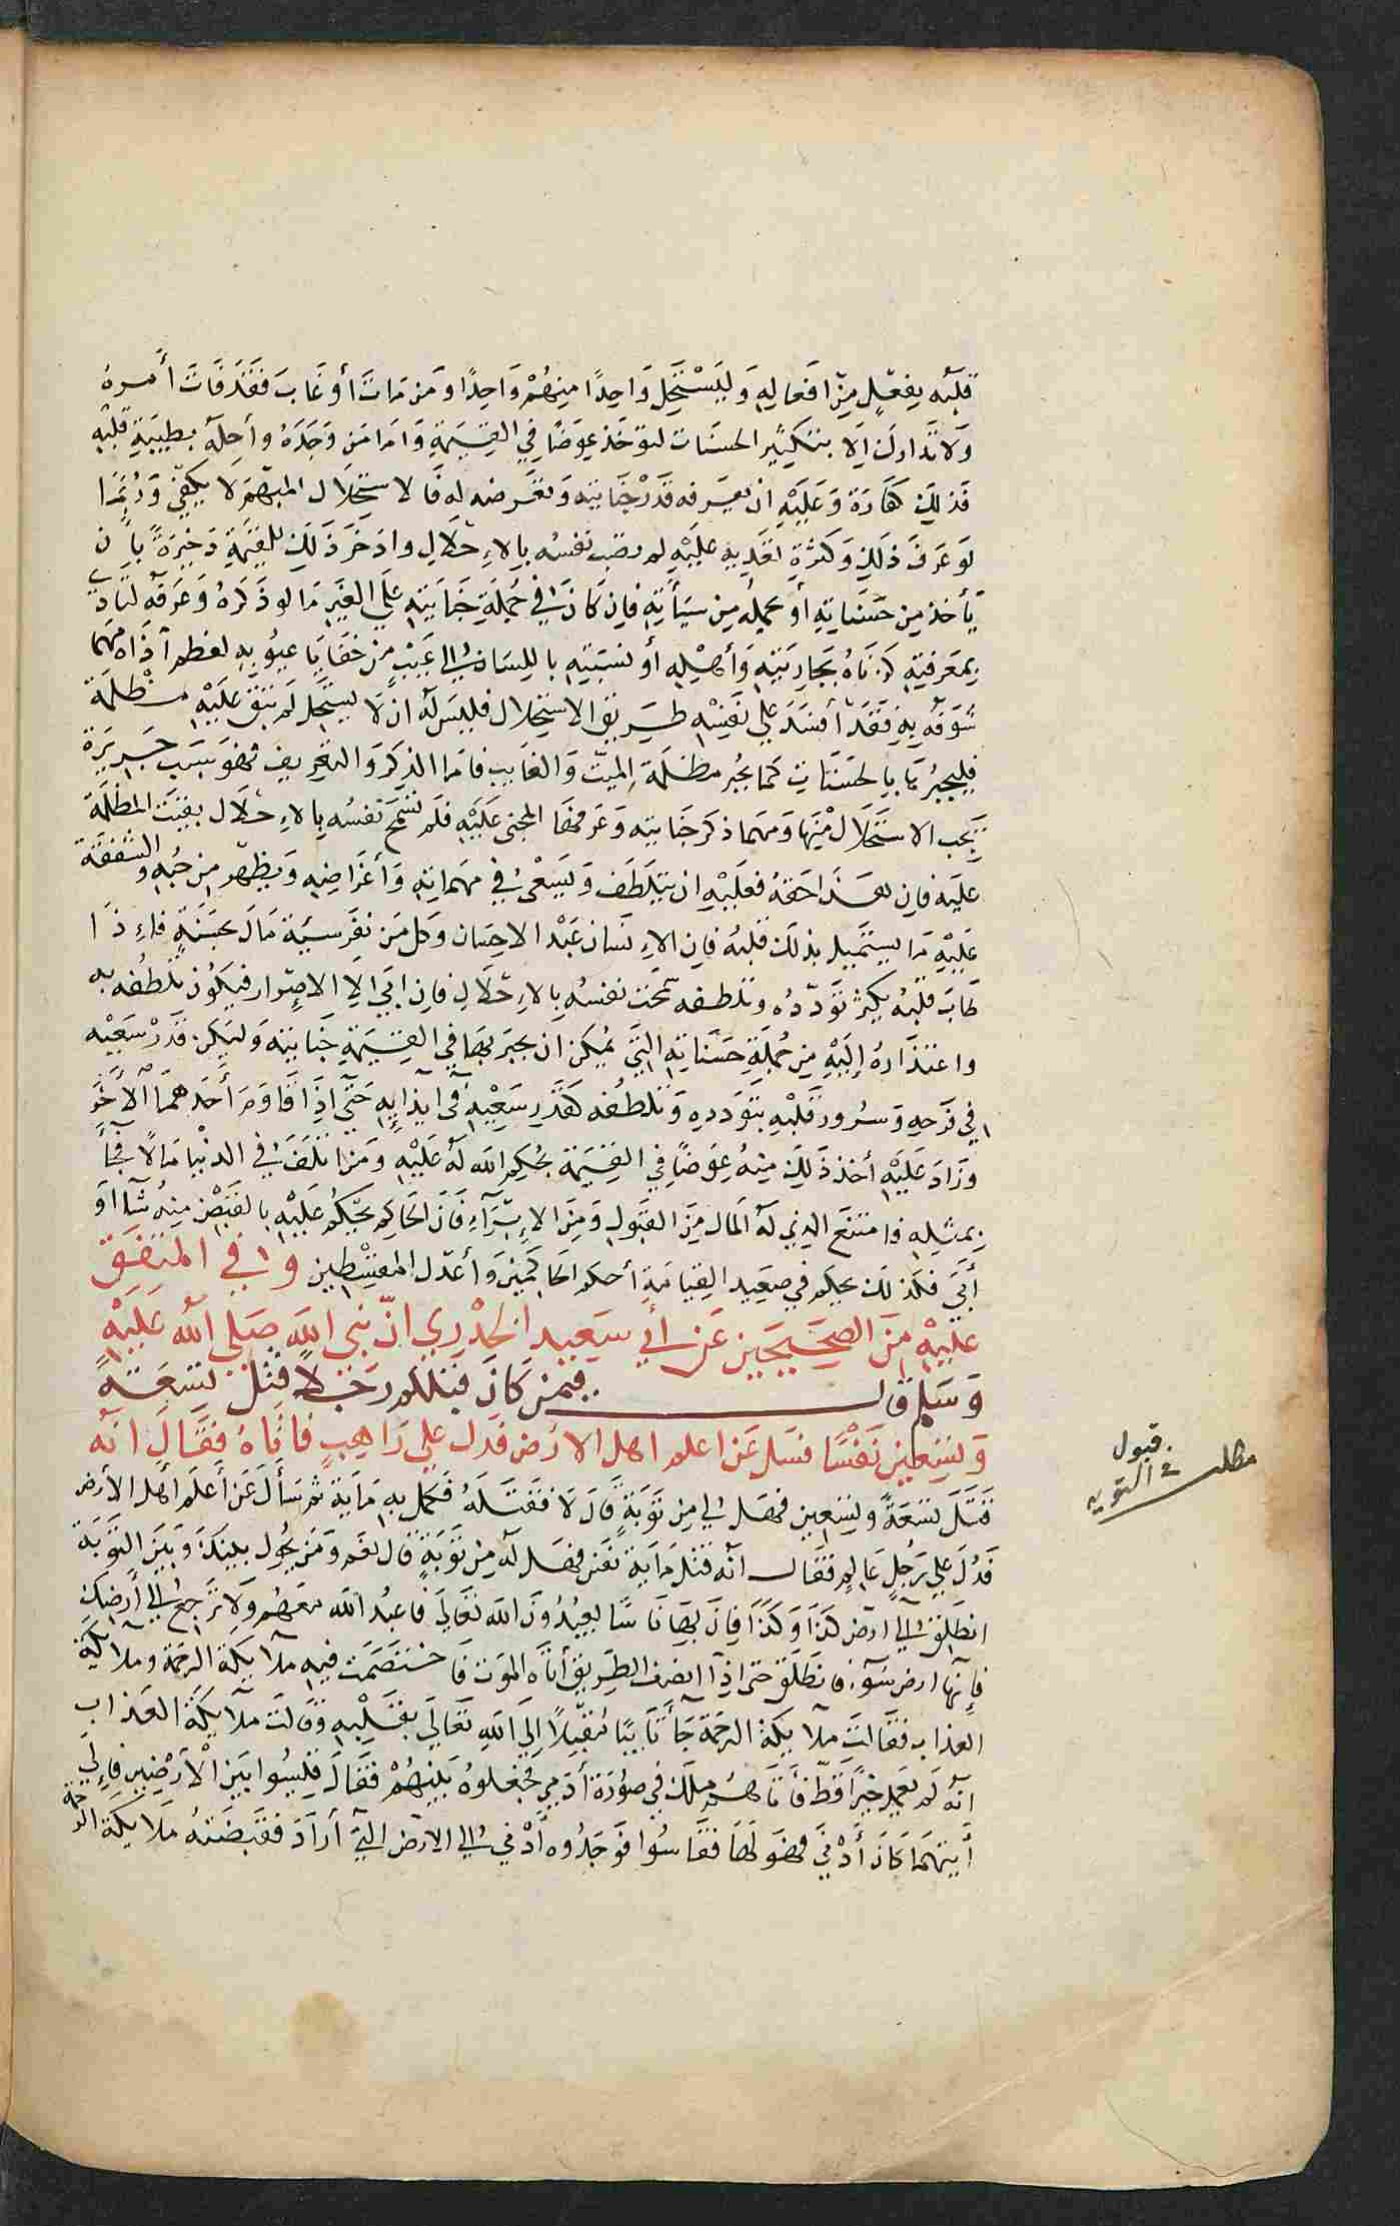 قلبه بفعل من افعاله وليستحل واحدًا منهم واحدًا ومن مات أو غاب فقد فات أمره
ولا تدارك الا بتكثير الحسنات لتوخذ عوضًا في القيمة واما من وجده وأحله بطيبة قلبه
فذلك كفارة وعليه ان يعرفه قدر جنايته وتعرضه له فالاستحلال المبهم لا يكفي وربما
لو عرف ذلك وكثرة تعديه عليه لم تطب نفسه بالاحلال وادخر ذلك للقيمة ذخيرة بان
يأخذ من حسناته أو يحمله من سيأته فإن كان في جملة جنايته على الغير ما لو ذكره وعرفه لتاذى
بمعرفته كزناه بجاريته وأهله أو نسبته باللسان إلى عيب من خفايا عيوبه لعظم أذاه مهما
شوفه به فقد أفسد على نفسه طريق الاستحلال فليس له ان لا يستحل لم تبق عليه مظلمة
فليجبرها بالحسنات كما يجبر مظلمة الميت والغايب فاما الذكر والتعريف فهو سبب جريرة
يجب الاستحلال منها ومهما ذكر جنايته وعرفها المجنى عليه فلم تسمح نفسه بالاحلال بقيت المظلمة
عليه فان هذا حقه فعليه ان يتلطف ويسعى في مهماته وأغراضه ويظهر من حبه والشفقة
عليه ما يستميل بذلك قلبه فان الانسان عبد الاحسان وكل من نفر بسيئة مال بحسنة فاذا
طاب قلبه بكثرة تودده وتلطفه سمحت نفسه بالاحلال فإن ابى إلا الاصرار فيكون تلطفه به
واعتذاره إليه من جملة حسناته التي يمكن ان يجبر بها في القيمة جنايته وليكن قدر سعيه
في فرحه وسرور قلبه بتودده وتلطفه كقدر سعيه في ايذايه حتى اذا قاوم أحدهما الأخر
وزاد عليه أخذ ذلك منه عوضًا في القيمة بحكم الله له عليه ومن اتلف في الدنيا مالًا فجأ
بمثله فامتنع الذي له المال من القبول ومن الابرآء فان الحاكم يحكم عليه بالقبض منه شآ او
أبى فكذلك يحكم في صعيد القيامة أحكم الحاكمين وأعدل المقسطين وفي المتفق
عليه من الصحيحين عن أبي سعيد الخدري انّ نبي الله صلى الله عليه
وسلم قال فيمن كان قبلكم رجلا قتل تسعة
وتسعين نفسًا فسل عن اعلم اهل الارض فدل على راهب فاتاه فقال انه
قتل تسعة وتسعين فهل لي من توبة قال لا فقتله فكمل به ماية ثم سأل عن أعلم أهل الأرض
فدل على رجل عالم فقال انه قتل ماية نفس فهل له من توبة قال نعم ومن يحول بينك وبين التوبة
انطلق إلى ارض كذا وكذا فان بها ناسًا يعبدون الله تعالى فاعبد الله معهم ولا ترجع إلى أرضك
فإنها ارض سوء فانطلق حتى اذا انصف الطريق أتاه الموت فاختصمت فيه ملآيكة الرحمة وملآيكة
العذاب فقالت ملآيكة الرحمة جأ تايبًا مقبلًا إلى الله تعالى بقلبه وقالت ملآيكة العذاب
انه لم يعمل خيرًا قط فأتاهم ملك في صورة أدمي فجعلوه بينهم فقال قيسوا بين الأرضين فإلى
أيتهما كان أدنى فهو لها فقاسوا فوجدوه أدنى إلى الارض التي أراد فقبضته ملآيكة الرحمة
مطلب
في قبول
التوبه